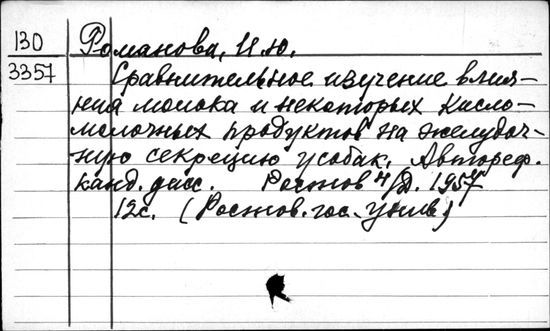 130 Романова, И.Ю.
3357 Сравнительное изучение влия-
ния молока и некоторых кисло-
молочных продуктов на желудоч-
ную секрецию у собак. Автореф.
канд. дисс. Ростов н/Д. 1957
12с. (Ростов. гос. ун-т)